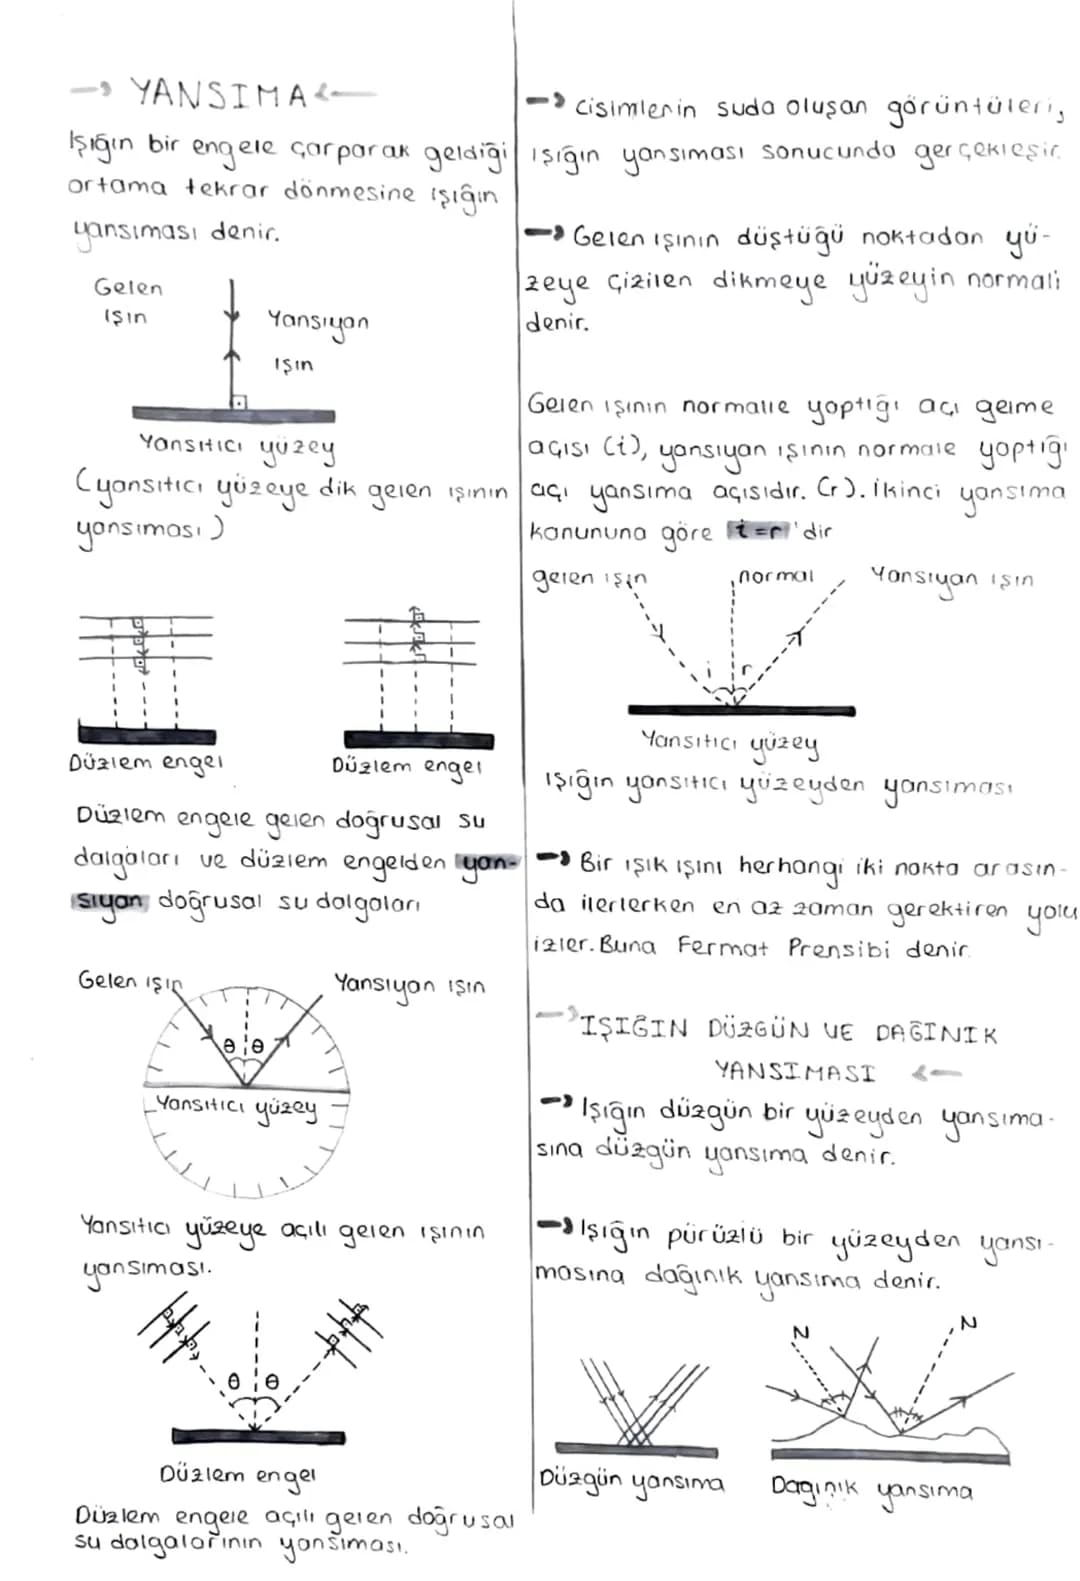 YANSIMA
Işığın bir engele çarparak geldiği
ortama tekrar dönmesine ışığın
yansıması denir.
Gelen
ışın
Yansıyan
ışın
Yansıtıcı yüzey
(yansıtıcı yüzeye dik gelen ışının
yansıması)
Düzlem engel
Düzlem engel
Düzlem engele gelen doğrusal su
dalgaları ve düzlem engelden yan-
sıyan doğrusal su dalgaları
Gelen ışın
Yansıyan ışın
θ θ
Yansıtıcı yüzey
Yansıtıcı yüzeye açılı gelen ışının
yansıması.
θ θ
Düzlem engel
Düzlem engele açılı gelen doğrusal
su dalgalarının yansıması.
Cisimlerin suda oluşan görüntüleri,
ışığın yansıması sonucunda gerçekleşir.
Gelen ışının düştüğü noktadan yü-
zeye çizilen dikmeye yüzeyin normali
denir.
Gelen ışının normalle yaptığı açı gelme
açısı (i), yansıyan ışının normale yaptığı
açı yansıma açısıdır. (r). İkinci yansıma
kanununa göre i=r'dir
gelen ışın
normal
Yansıyan ışın
i r
Yansıtıcı yüzey
Işığın yansıtıcı yüzeyden yansıması
Bir ışık ışını herhangi iki nokta arasın-
da ilerlerken en az zaman gerektiren yolu
izler. Buna Fermat Prensibi denir.
IŞIĞIN DÜZGÜN VE DAĞINIK
YANSIMASI
Işığın düzgün bir yüzeyden yansıma-
sına düzgün yansıma denir.
Işığın pürüzlü bir yüzeyden yansı-
masına dağınık yansıma denir.
N
N
Düzgün yansıma
Dağınık yansıma